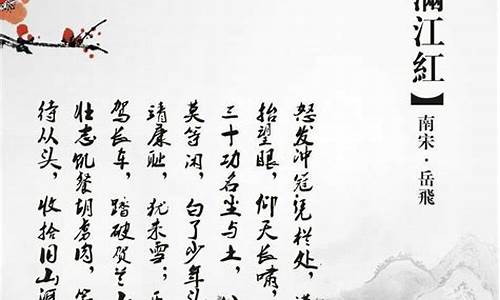 滿江紅】
南宋·岳飛
怒发冲冠凭栏处，
抬望眼，仰天长啸，
三十功名尘与土，
莫等闲，白了少年头
靖康耻，犹未雪；
驾长车，踏破贺兰山
壮志饥餐胡虏肉，笑
待从头，收拾旧山河